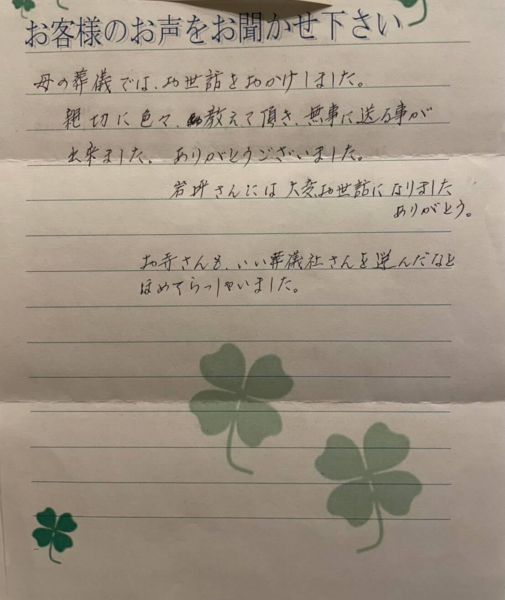 お客様のお声をお聞かせ下さい
母の葬儀では、お世話をおかけしました。
親切に色々、教えて頂き、無事に送る事が
出来ました。ありがとうございました。
岩坪さんには大変お世話になりました
ありがとう。
お寺さんも、いい葬儀社さんを選んだなと
ほめてらっしゃいました。